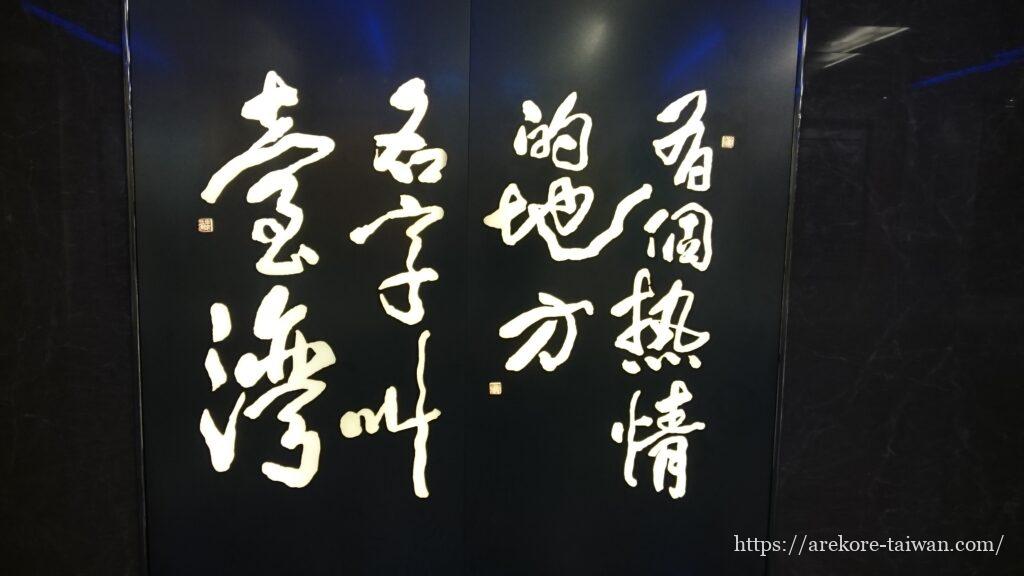 有個热情
的地方
名字叫
臺灣
https://arekore-taiwan.com/